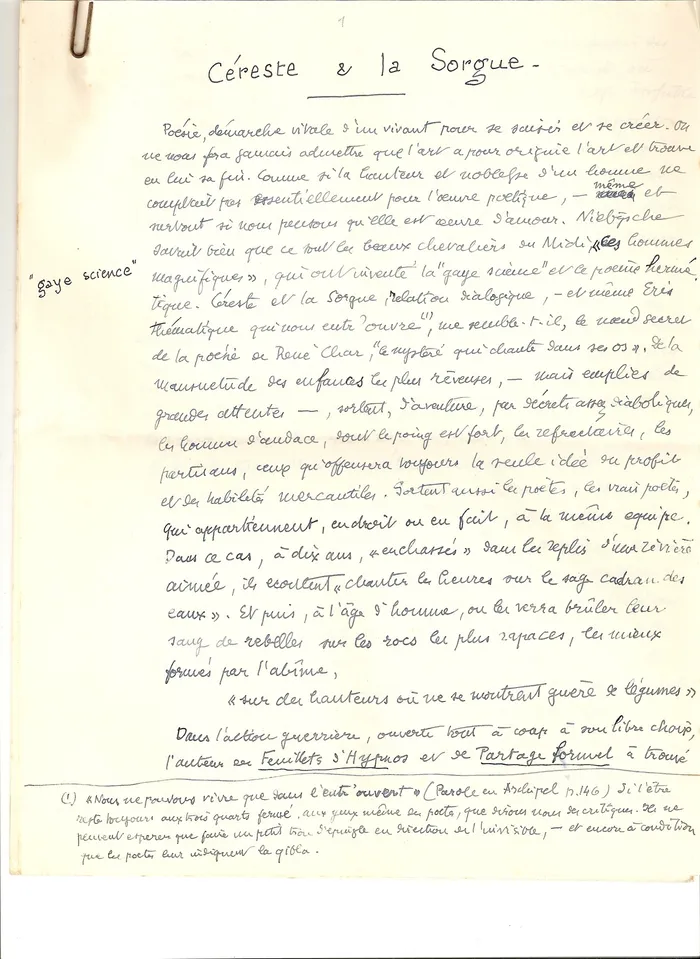 1
Céreste & la Sorgue -
Poésie, démarche vitale d'un vivant pour se saisir et se créer. On
ne nous fera jamais admettre que l'art a pour origine l'art et trouve
en lui sa fin. Comme si la hauteur et noblesse d'un homme ne
comptait pas essentiellement pour l'œuvre poétique, — même et
surtout si nous pensons qu'elle est œuvre d'amour. Nietzsche
savait bien que ce sont les beaux chevaliers du Midi, « ces hommes
"gaye science"
magnifiques », qui ont inventé la "gaye science" et le poème hermé
tique. Céreste et la Sorgue, relation dialogique, — et même Eris
thématique qui nous entr'ouvre (1), me semble-t-il, le nœud secret
de la poésie de René Char, "le mystère qui chante dans ses os ». De la
mansuétude des enfances les plus rêveuses, — mais emplies de
grandes attentes —, sortent, d'aventure, par décrets assez diaboliques,
les hommes d'audace, dont le poing est fort, les réfractaires, les
partisans, ceux qu'offensera toujours la seule idée du profit
et des habiletés mercantiles. Sortent aussi les poètes, les vrais poètes,
qui appartiennent, en droit ou en fait, à la même équipe.
Dans ce cas, à dix ans, « enchassés » dans les replis d'une rivière
aimée, ils écoutent « chanter les heures sur le sage cadran des
eaux ». Et puis, à l'âge d'homme, on les verra brûler leur
sang de rebelles sur les rocs les plus rapaces, les mieux
formés par l'abîme,
« sur des hauteurs où ne se montrent guère de légumes »
Dans l'action guerrière, ouverte tout à coup à son libre choix,
l'auteur des Feuillets d'Hypnos et de Partage formel a trouvé
(1) « Nous ne pouvons vivre que dans l'entr'ouvert » (Parole en Archipel p. 146) Si l'être
reste toujours aux trois quarts fermé, aux yeux même du poète, que dirons nous des critiques. Ils ne
peuvent espérer que faire un petit trou d'épingle en direction de l'invisible, — et encore à condition
que les poètes leur indiquent la qibla.